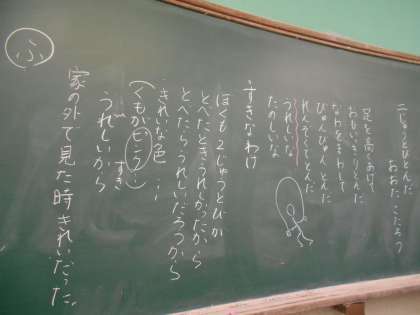 二じゅうとびとんだ
おおた こたろう
足を高くあげ
おもいきりとんだ
なわをまわして
びゅんびゅんとんだ
れんぞくでとんだ
うれしいな
たのしいな
すきなわけ
ぼくも2じゅうとびが
とべたときうれしかったから
とべたらうれしいだろうから
きれいな色…
(くもがピンク)すき
うれしいから
家の外で見た時きれいだった
ふ